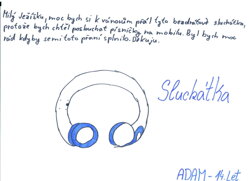 Milý Ježíšku, moc bych si k vánocům přál tyto bezdrátové sluchátka,
protože bych chtěl poslouchat písničky na mobilu. Byl bych moc
rád kdyby se mi toto přání splnilo. Děkuju.
Sluchátka
ADAM - 14 let